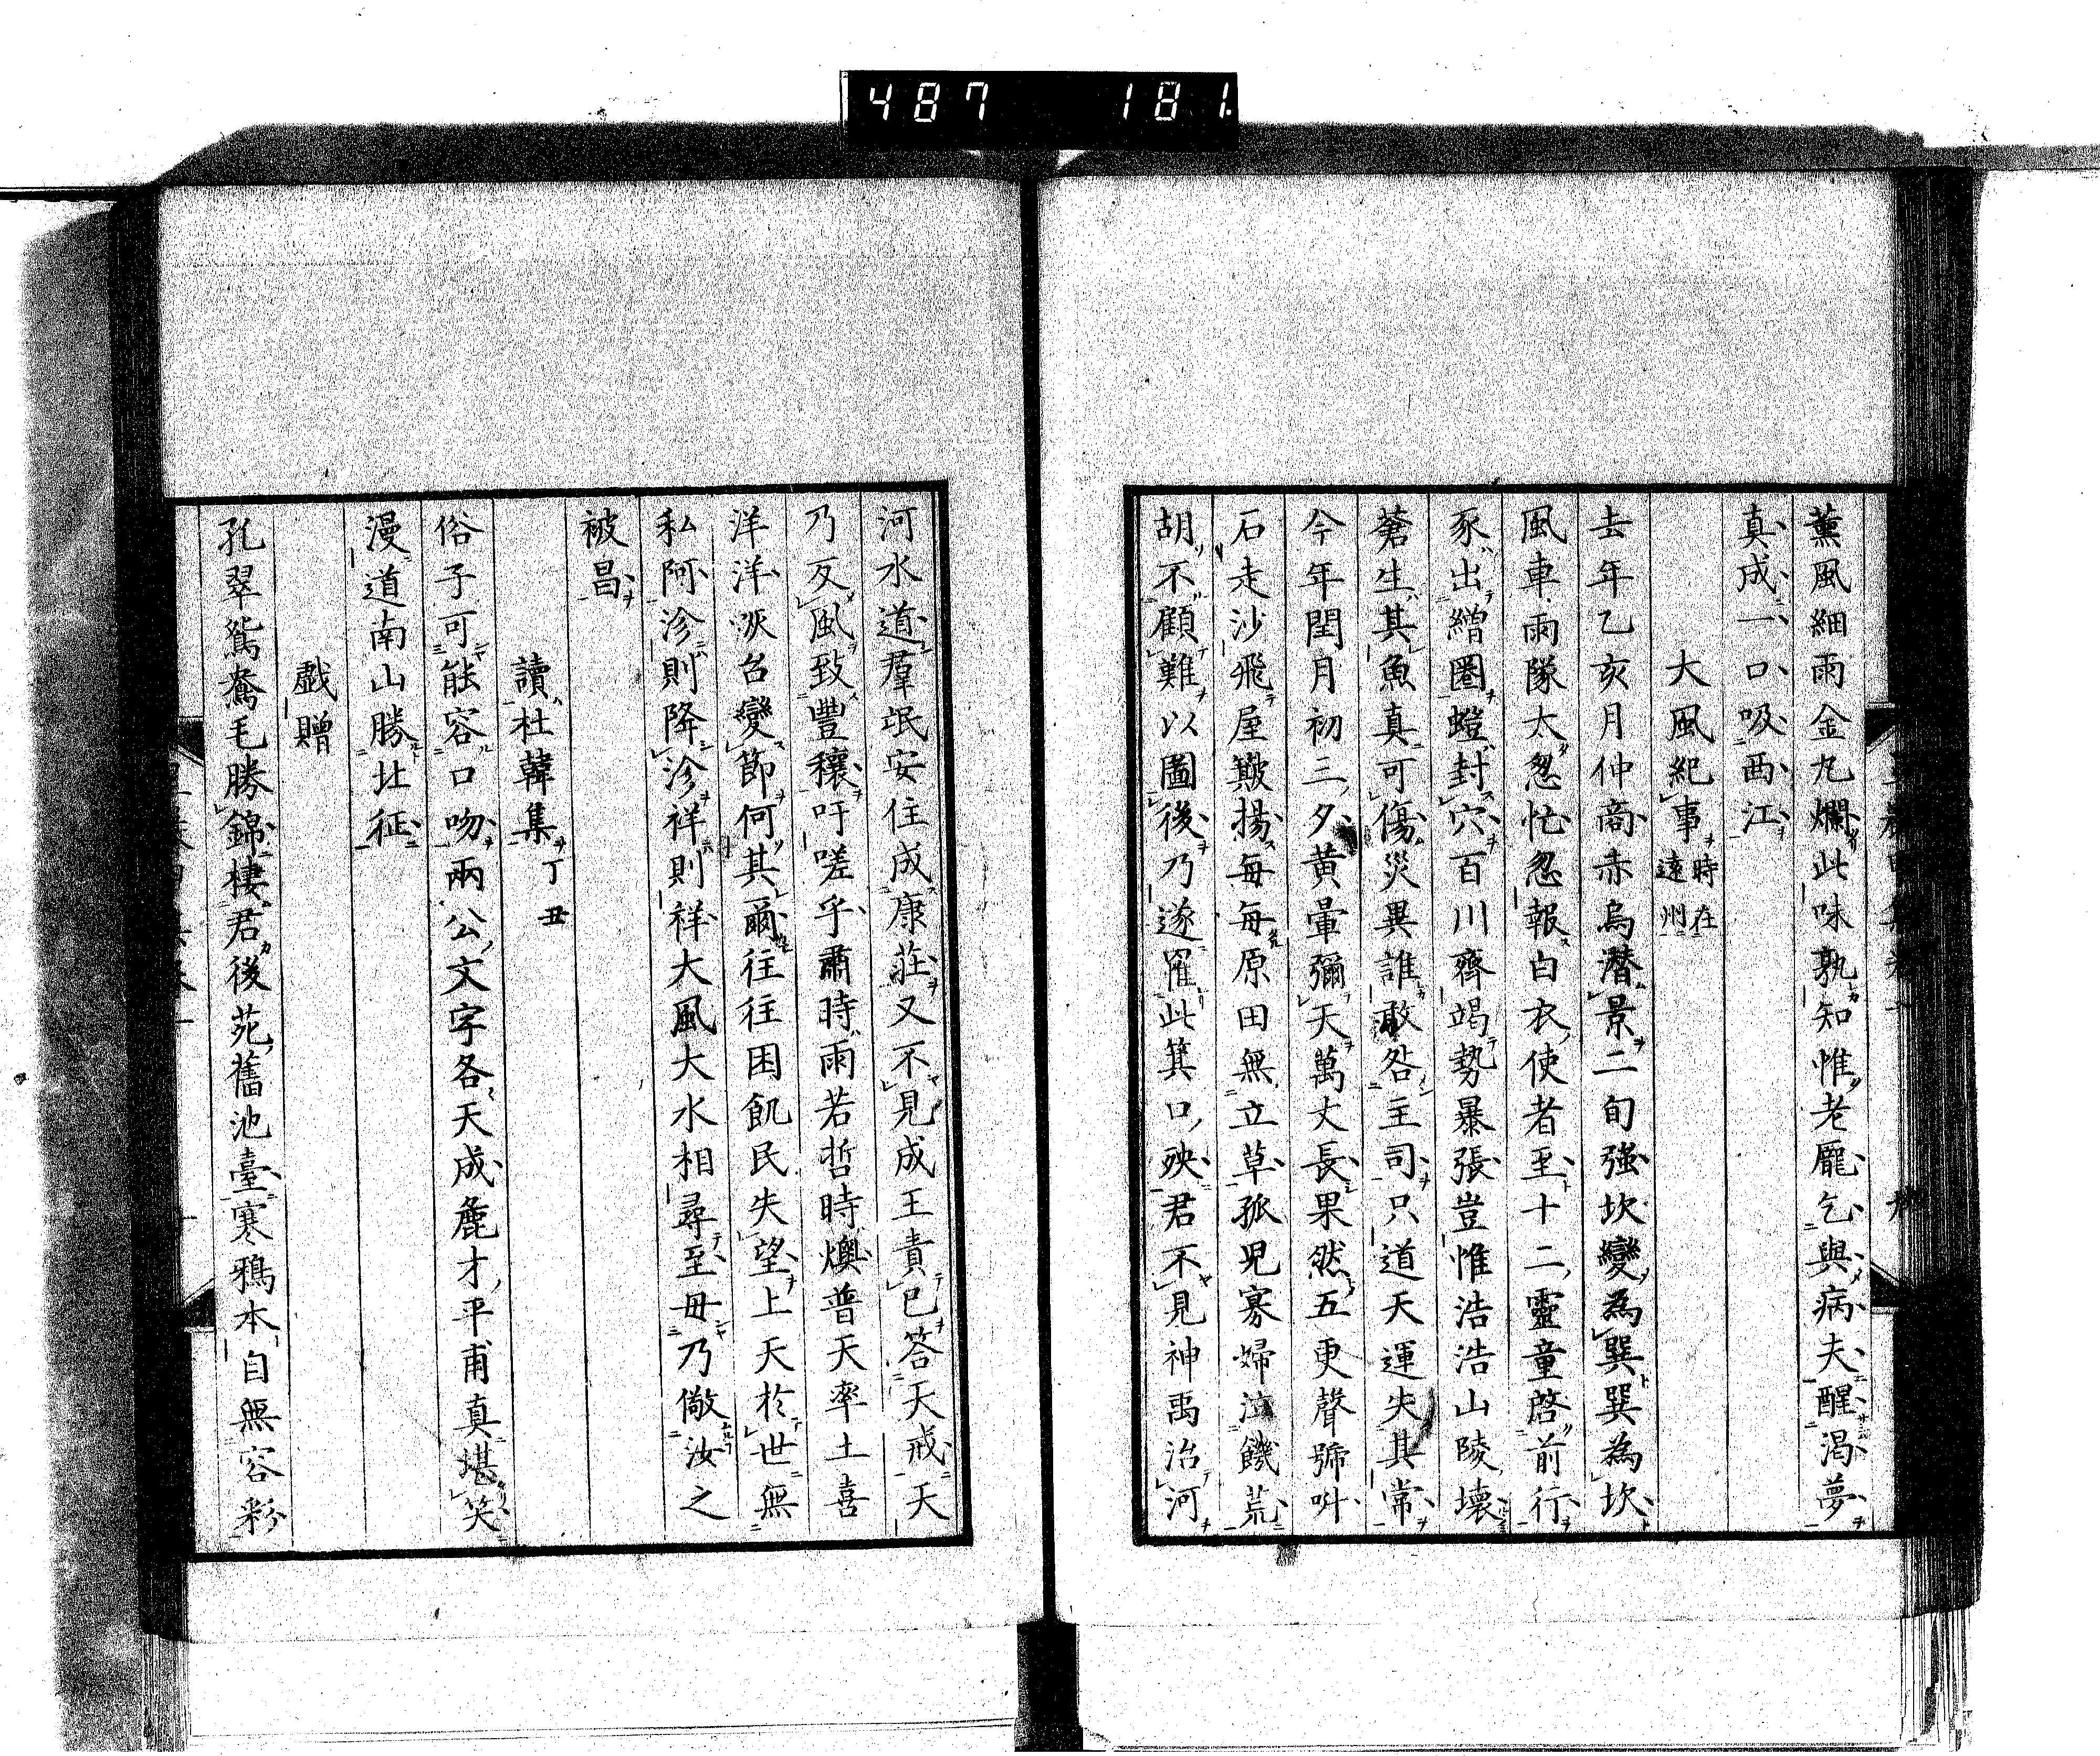 487 181
薫風細雨金丸爛此味孰知惟老龐乞與病夫醒渇夢
真成一口吸西江
大風紀事時在遠州
去年乙亥月仲商赤烏潜景二旬强坎變為巽巽為坎
風車雨隊太怱忙忽報白衣使者至十二靈童啓前行
豕出繒圏螘封穴百川齊竭勢暴張豈惟浩浩山陵壞
蒼生其魚真可傷災異誰敢咎主司只道天運失其常
今年閏月初三夕黄暈彌天萬丈長果然五更聲號吽
石走沙飛屋簸揚毎毎原田無立草孤児寡婦泣饑荒
胡不顧難以圖後乃遂罹此箕口殃君不見神禹治河
河水道羣氓安住成康莊又不見成王責已答天戒天
乃反風致豐穰吁嗟乎肅時雨若哲時燠普天率土喜
洋洋咲台變節何其爾往往困飢民失望上天於世無
私阿沴則降沴祥則祥大風大水相尋至毋乃儆汝之
被昌
讀杜韓集丁丑
俗子可能容口吻兩公文字各天成麁才平甫真堪笑
漫道南山勝北征
戯贈
孔翠鴛鴦毛勝錦棲君後苑舊池臺寒鴉本自無容粉